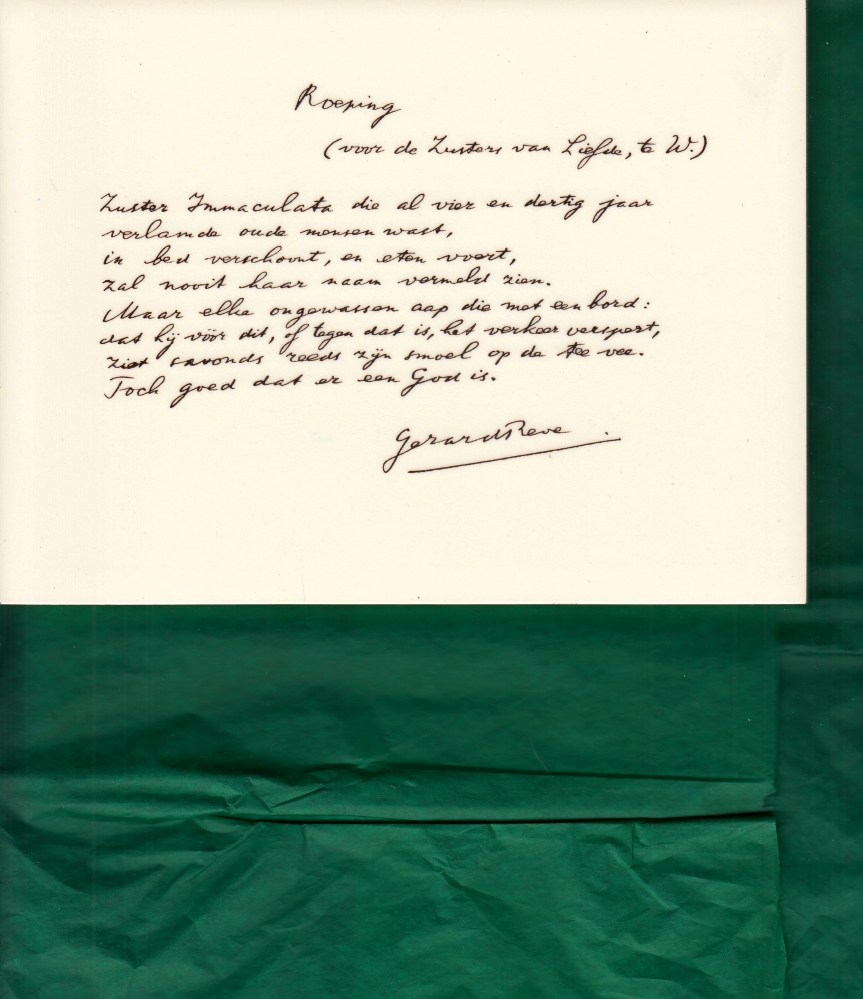 Roeping
(voor de Zusters van Liefde, te W.)
Zuster Immaculata die al vier en dertig jaar
verlamde oude mensen wast,
in bed verschoont, en eten voert,
zal nooit haar naam vermeld zien.
Maar elke ongewassen aap die met een bord:
dat hij vóór dit, of tegen dat is, het verkeer verspert,
ziet savonds reeds zijn smoel op de tee vee.
Toch goed dat er een God is.
Gerard Reve.